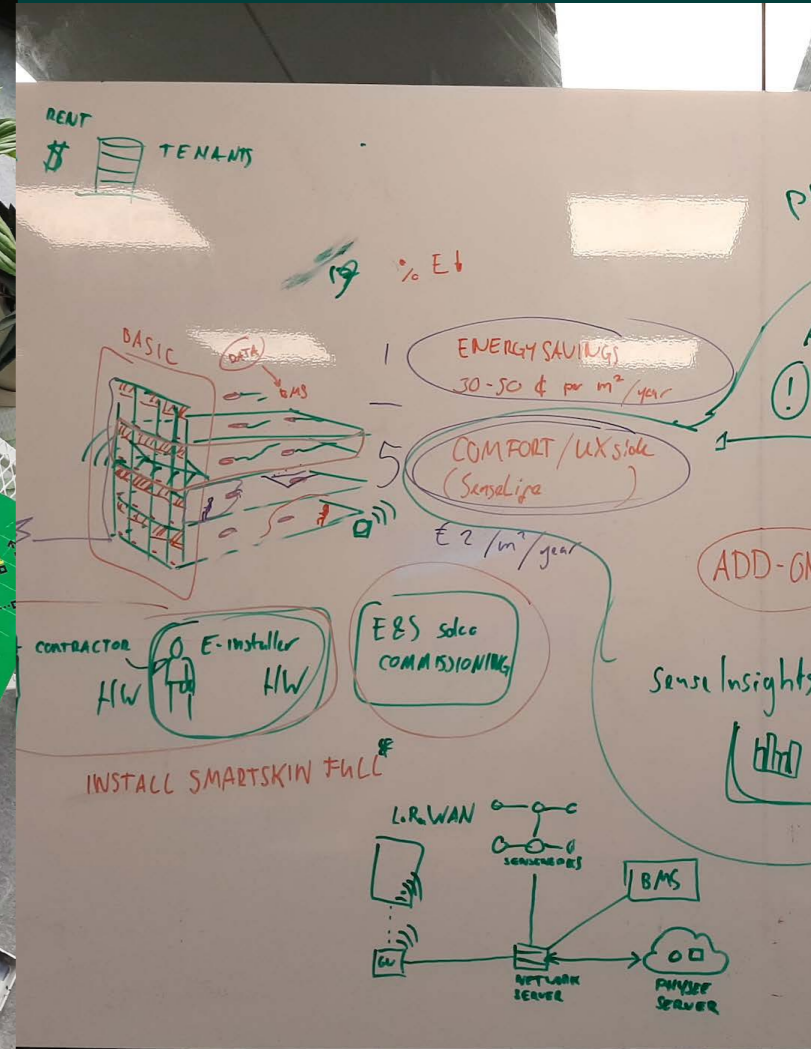 RENT
$ TENANTS
% E↓
BASIC
DATA
BMS
1
ENERGY SAVINGS
30-50 ¢ per m²/year
5
COMFORT/UX side
(SenseLife )
€2/m²/year
ADD-ON
CONTRACTOR
HW
E-installer
HW
E&S
COMMISSIONING
INSTALL SMARTSKIN FULL*
SenseInsights
LoRaWAN
BMS
GW
NETWORK
SERVER
PHYSEE
SERVER
!
1